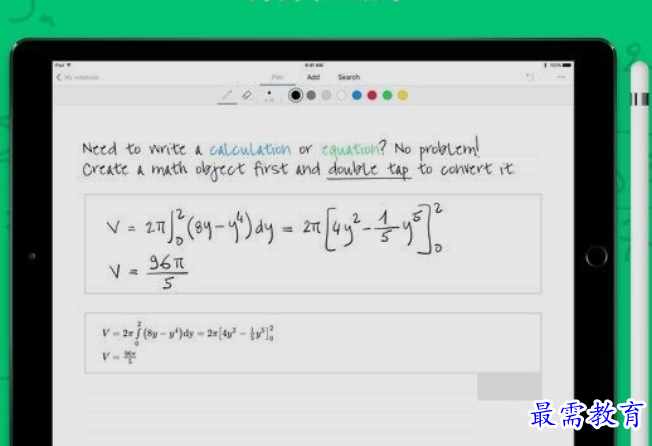 iPad
9:41 AM
100%
My notebook
Pen Add Search
Need to write a calculation or equation? No problem!
Create a math object first and double tap to convert it.
V = 2π∫₀²(8y−y⁴)dy = 2π[4y²−1/5 y⁵]₀²
V = 96π/5
V = 2π∫₀²(8y − y⁴)dy = 2π[4y² − 1/5 y⁵]₀²
V = 96π/5
最需教育